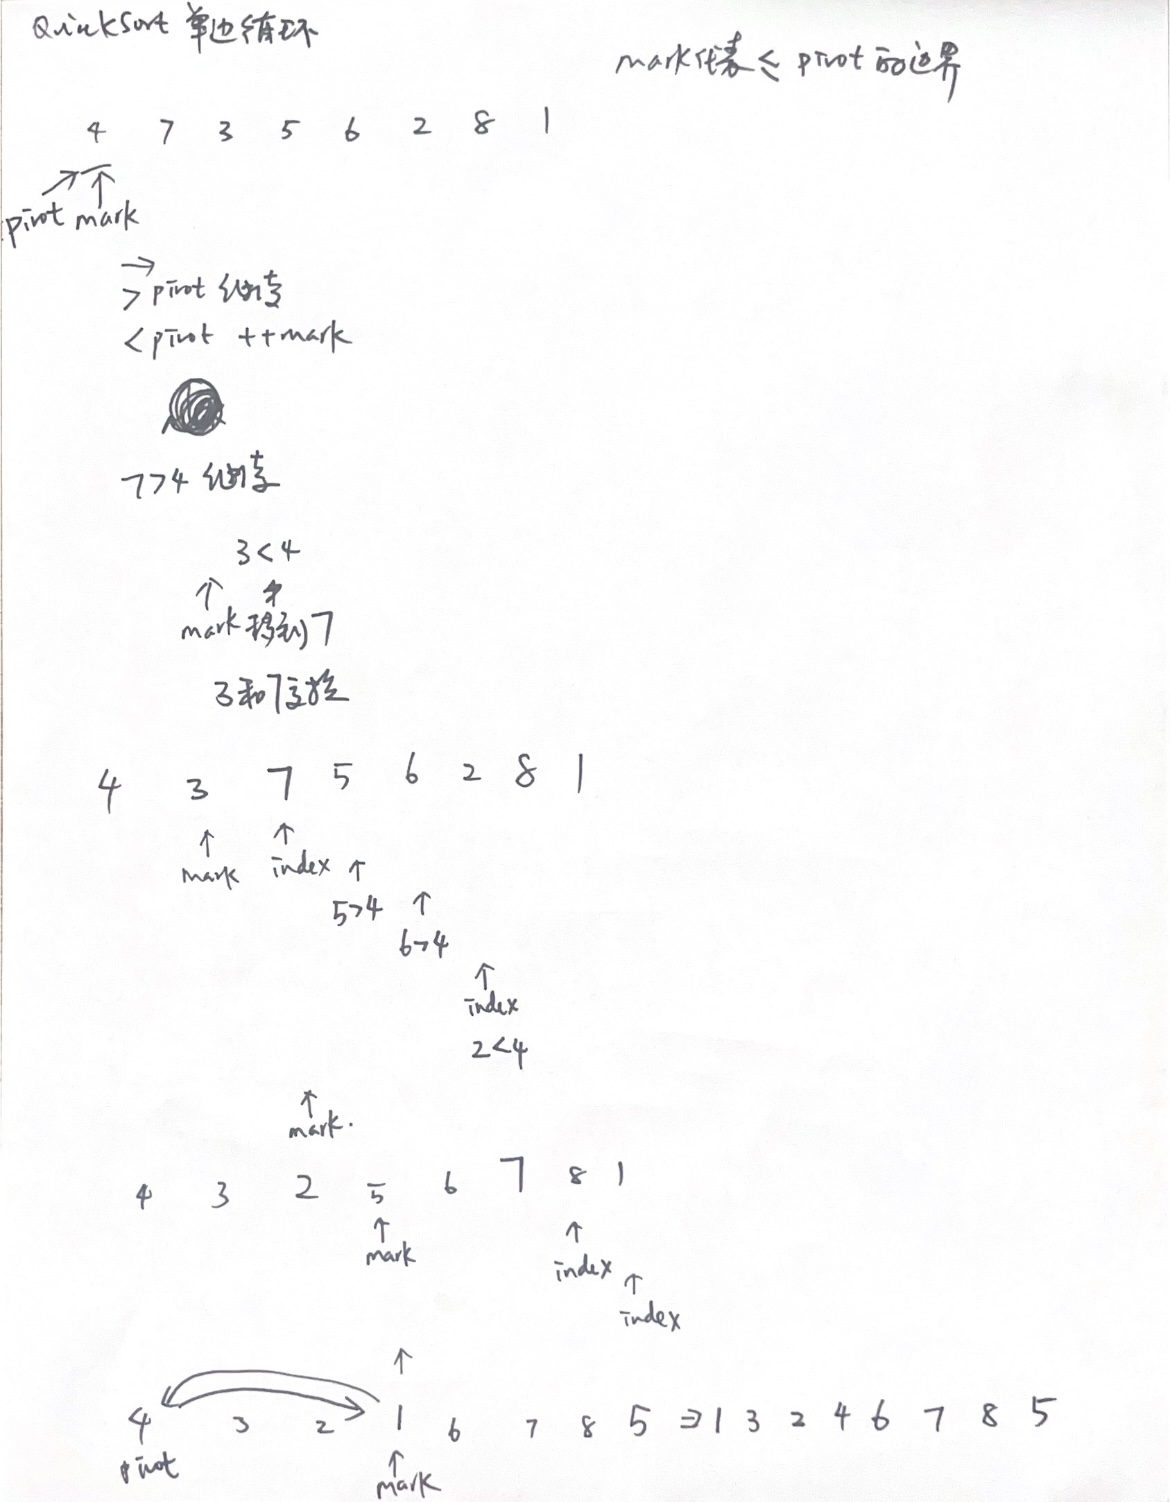 QuickSort 单边循环
mark代表 ≤ pivot 的边界
4 7 3 5 6 2 8 1
pivot mark
> pivot 继续
< pivot ++mark
7>4 继续
3<4
mark 移到 7
3和7交换
4 3 7 5 6 2 8 1
mark index
5>4
6>4
index
2<4
mark.
4 3 2 5 6 7 8 1
mark index
index
4 3 2 1 6 7 8 5 ⇒ 1 3 2 4 6 7 8 5
pivot mark